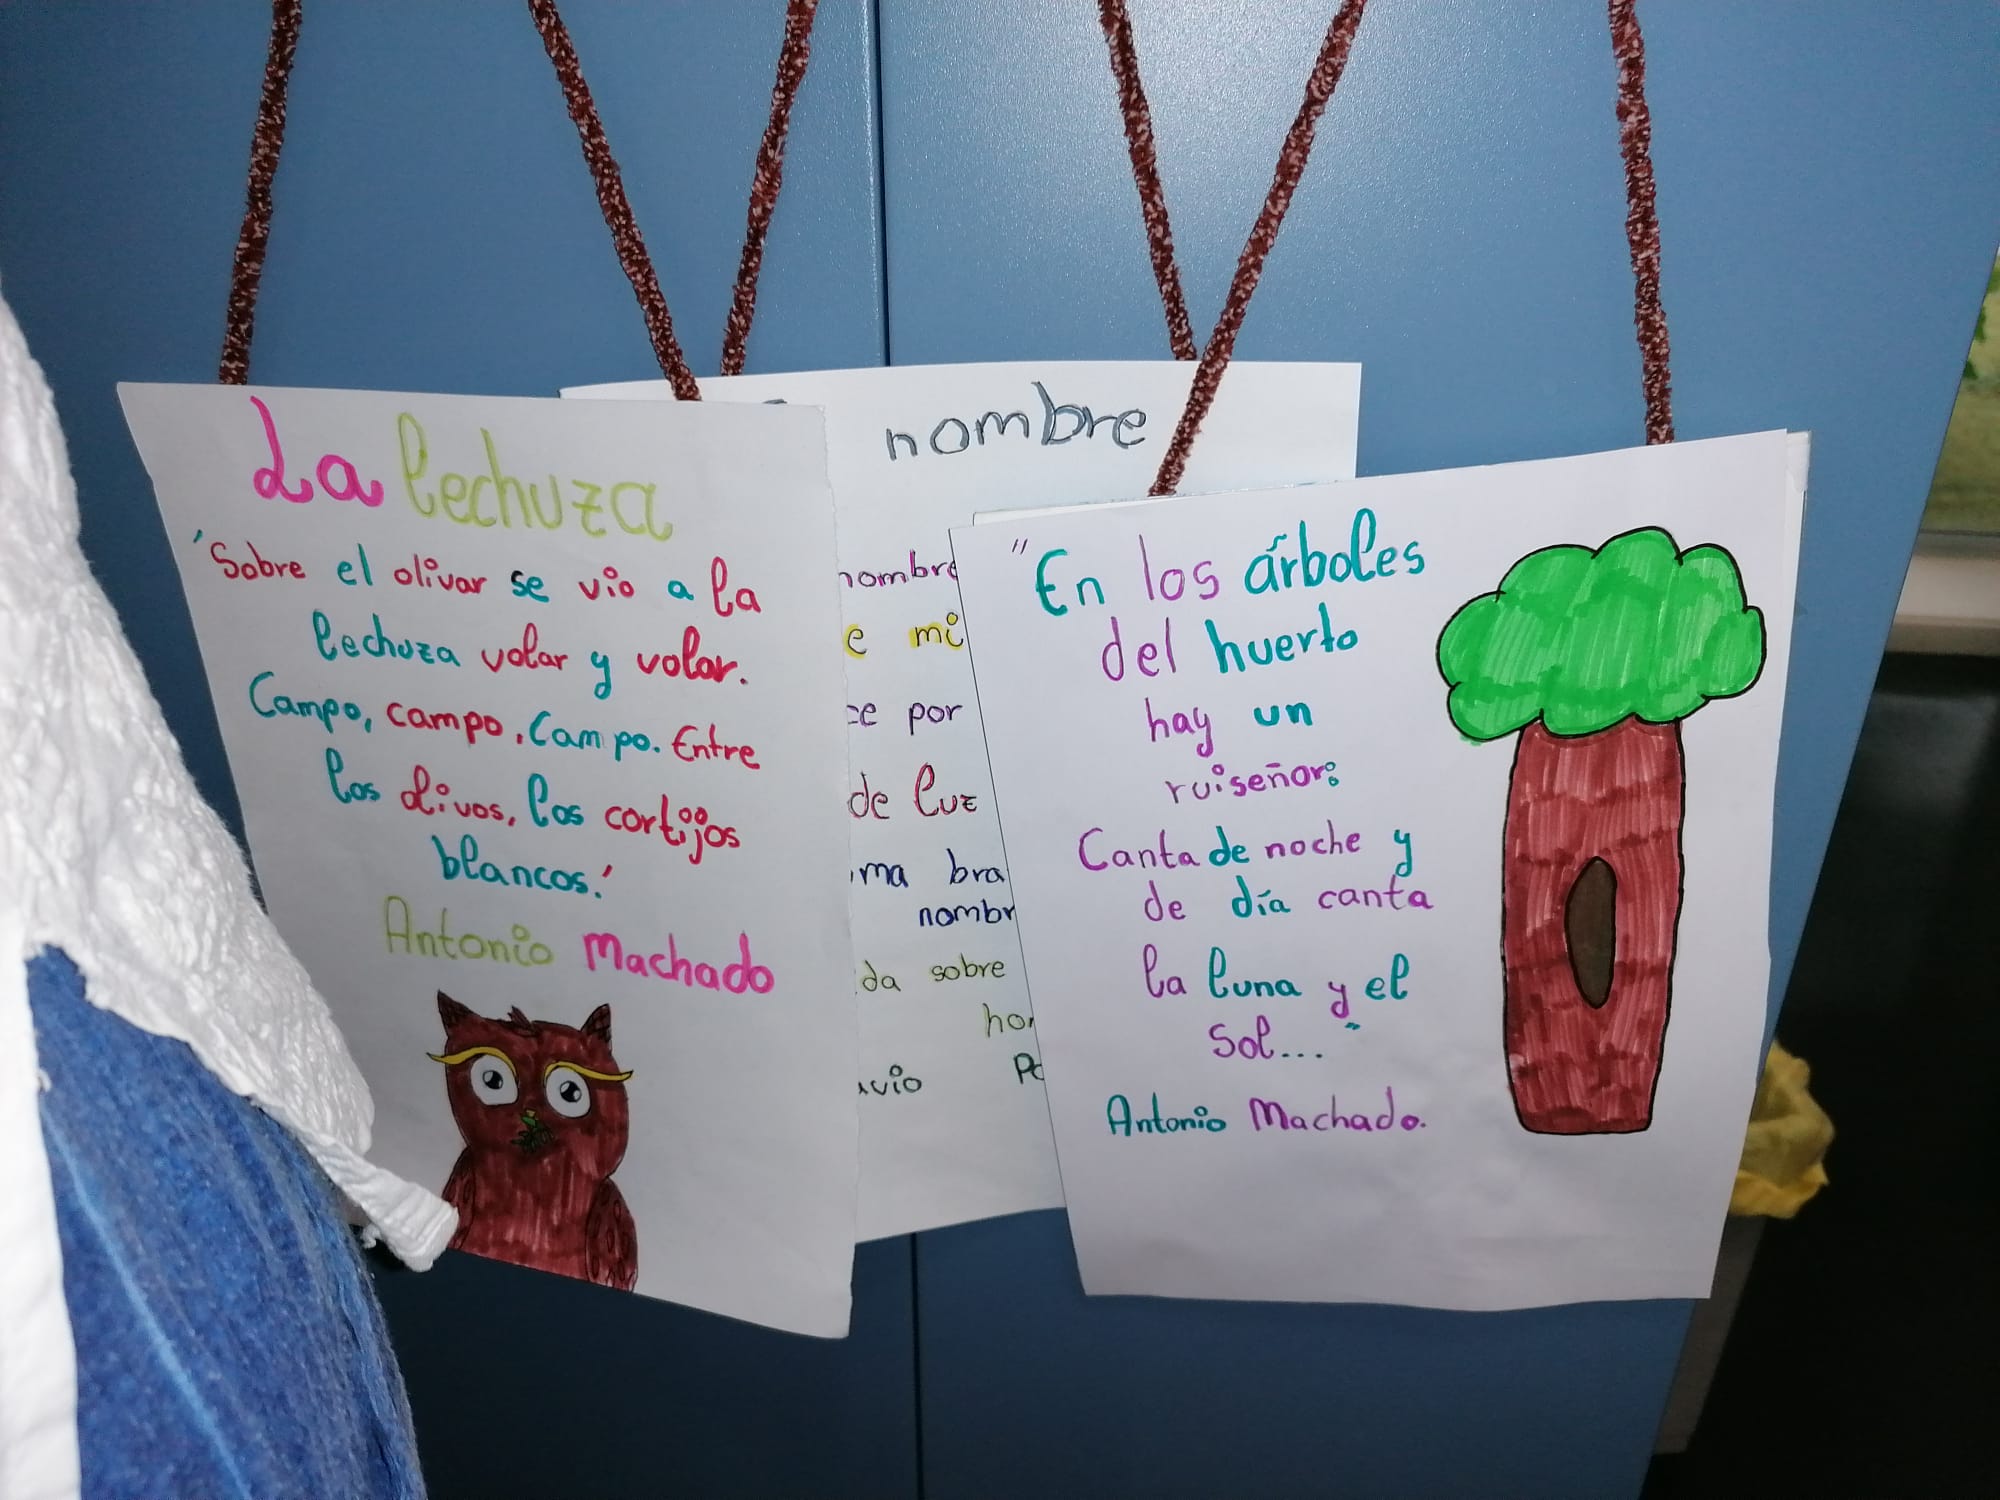 La lechuza
'Sobre el olivar se vio a la
lechuza volar y volar.
Campo, campo, Campo. Entre
los olivos, los cortijos
blancos.'
Antonio Machado
nombre
nombre
e mi
por
de luz
bra
nombr
da sobre
"En los árboles
del huerto
hay un
ruiseñor:
Canta de noche y
de día canta
la luna y el
sol..."
Antonio Machado.